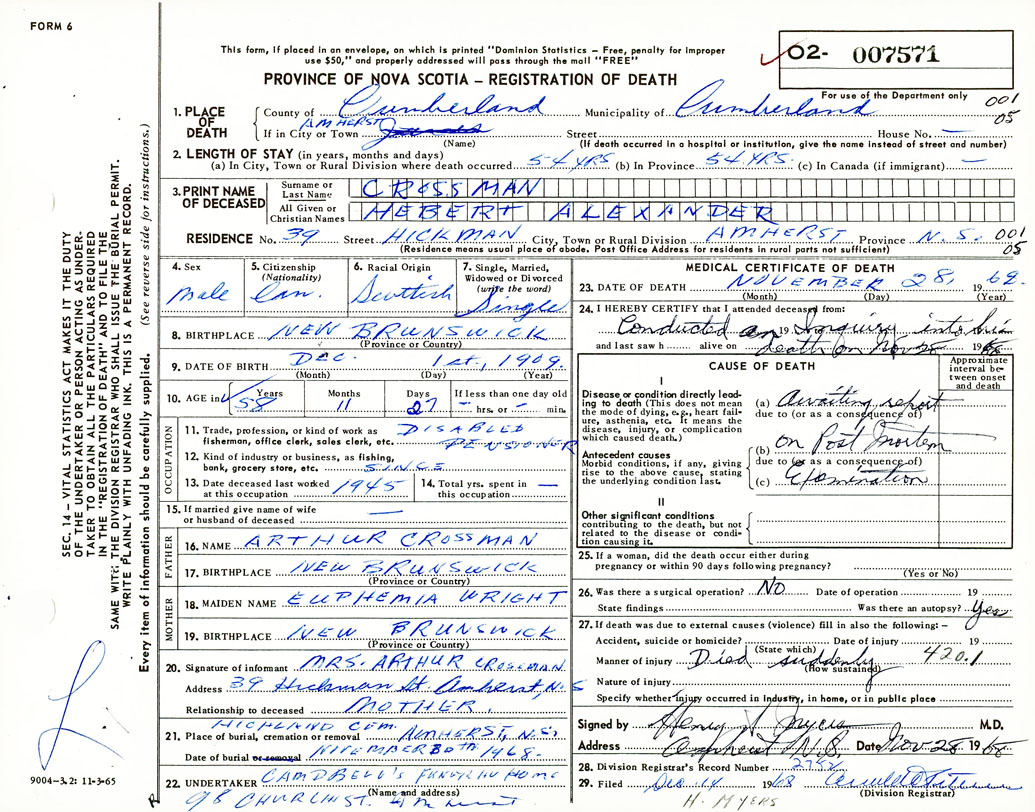 FORM 6
This form, if placed in an envelope, on which is printed "Dominion Statistics – Free, penalty for improper
use $50," and properly addressed will pass through the mail "FREE"
02- 007571
PROVINCE OF NOVA SCOTIA – REGISTRATION OF DEATH
For use of the Department only
001
05
1. PLACE OF DEATH County of Cumberland Municipality of Cumberland
If in City or Town AMHERST Street House No. —
(Name) (If death occurred in a hospital or institution, give the name instead of street and number)
2. LENGTH OF STAY (in years, months and days)
(a) In City, Town or Rural Division where death occurred 54 YRS (b) In Province 54 YRS. (c) In Canada (if immigrant) —
3. PRINT NAME OF DECEASED Surname or Last Name CROSSMAN
All Given or Christian Names HEBERT ALEXANDER
RESIDENCE No. 39 Street HICKMAN City, Town or Rural Division AMHERST Province N.S. 001
05
(Residence means usual place of abode. Post Office Address for residents in rural parts not sufficient)
4. Sex Male
5. Citizenship (Nationality) Can.
6. Racial Origin Scottish
7. Single, Married, Widowed or Divorced (write the word) Single
8. BIRTHPLACE NEW BRUNSWICK
(Province or Country)
9. DATE OF BIRTH DEC. 1st, 1909.
(Month) (Day) (Year)
10. AGE in Years 58 Months 11 Days 27 If less than one day old
– hrs. or – min.
OCCUPATION
11. Trade, profession, or kind of work as fisherman, office clerk, sales clerk, etc. DISABLED PENSIONER
12. Kind of industry or business, as fishing, bank, grocery store, etc. SINCE
13. Date deceased last worked at this occupation 1945
14. Total yrs. spent in this occupation —
15. If married give name of wife or husband of deceased —
FATHER
16. NAME ARTHUR CROSSMAN
17. BIRTHPLACE NEW BRUNSWICK
(Province or Country)
MOTHER
18. MAIDEN NAME EUPHEMIA WRIGHT
19. BIRTHPLACE NEW BRUNSWICK
(Province or Country)
20. Signature of informant MRS. ARTHUR CROSSMAN
Address 39 Hickman St. Amherst, N.S
Relationship to deceased MOTHER.
21. Place of burial, cremation or removal HIGHLAND CEM. AMHERST, N.S.
Date of burial or removal 1968.
22. UNDERTAKER CAMPBELL'S FUNERAL HOME
(Name and address)
98 CHURCH ST. Amherst
MEDICAL CERTIFICATE OF DEATH
23. DATE OF DEATH NOVEMBER 28, 1968.
(Month) (Day) (Year)
24. I HEREBY CERTIFY that I attended deceased from:
Conducted an 19 Inquiry into his
and last saw h alive on death on Nov 28 1968
CAUSE OF DEATH
Approximate interval between onset and death
I
Disease or condition directly leading to death (This does not mean the mode of dying, e.g., heart failure, asthenia, etc. It means the disease, injury, or complication which caused death.)
(a) Awaiting report
due to (or as a consequence of)
Antecedent causes
Morbid conditions, if any, giving rise to the above cause, stating the underlying condition last.
(b) on Post Mortem
due to (or as a consequence of)
(c) Examination
II
Other significant conditions
contributing to the death, but not related to the disease or condition causing it.
25. If a woman, did the death occur either during
pregnancy or within 90 days following pregnancy?
(Yes or No)
26. Was there a surgical operation? NO Date of operation 19
State findings Was there an autopsy? Yes
27. If death was due to external causes (violence) fill in also the following: –
Accident, suicide or homicide? Date of injury 19
(State which)
Manner of injury Died suddenly 420.1
(How sustained)
Nature of injury
Specify whether injury occurred in Industry, in home, or in public place
Signed by Henry M.D.
Address Amherst N.S. Date Nov 28 1968
28. Division Registrar's Record Number
29. Filed Dec. 14 1968
(Division Registrar)
H. MYERS
SEC. 14 – VITAL STATISTICS ACT MAKES IT THE DUTY
OF THE UNDERTAKER OR PERSON ACTING AS UNDER-
TAKER TO OBTAIN ALL THE PARTICULARS REQUIRED
IN THE "REGISTRATION OF DEATH" AND TO FILE THE
SAME WITH THE DIVISION REGISTRAR WHO SHALL ISSUE THE BURIAL PERMIT.
WRITE PLAINLY WITH UNFADING INK. THIS IS A PERMANENT RECORD.
Every item of information should be carefully supplied. (See reverse side for instructions.)
9004-3.2: 11-3-65